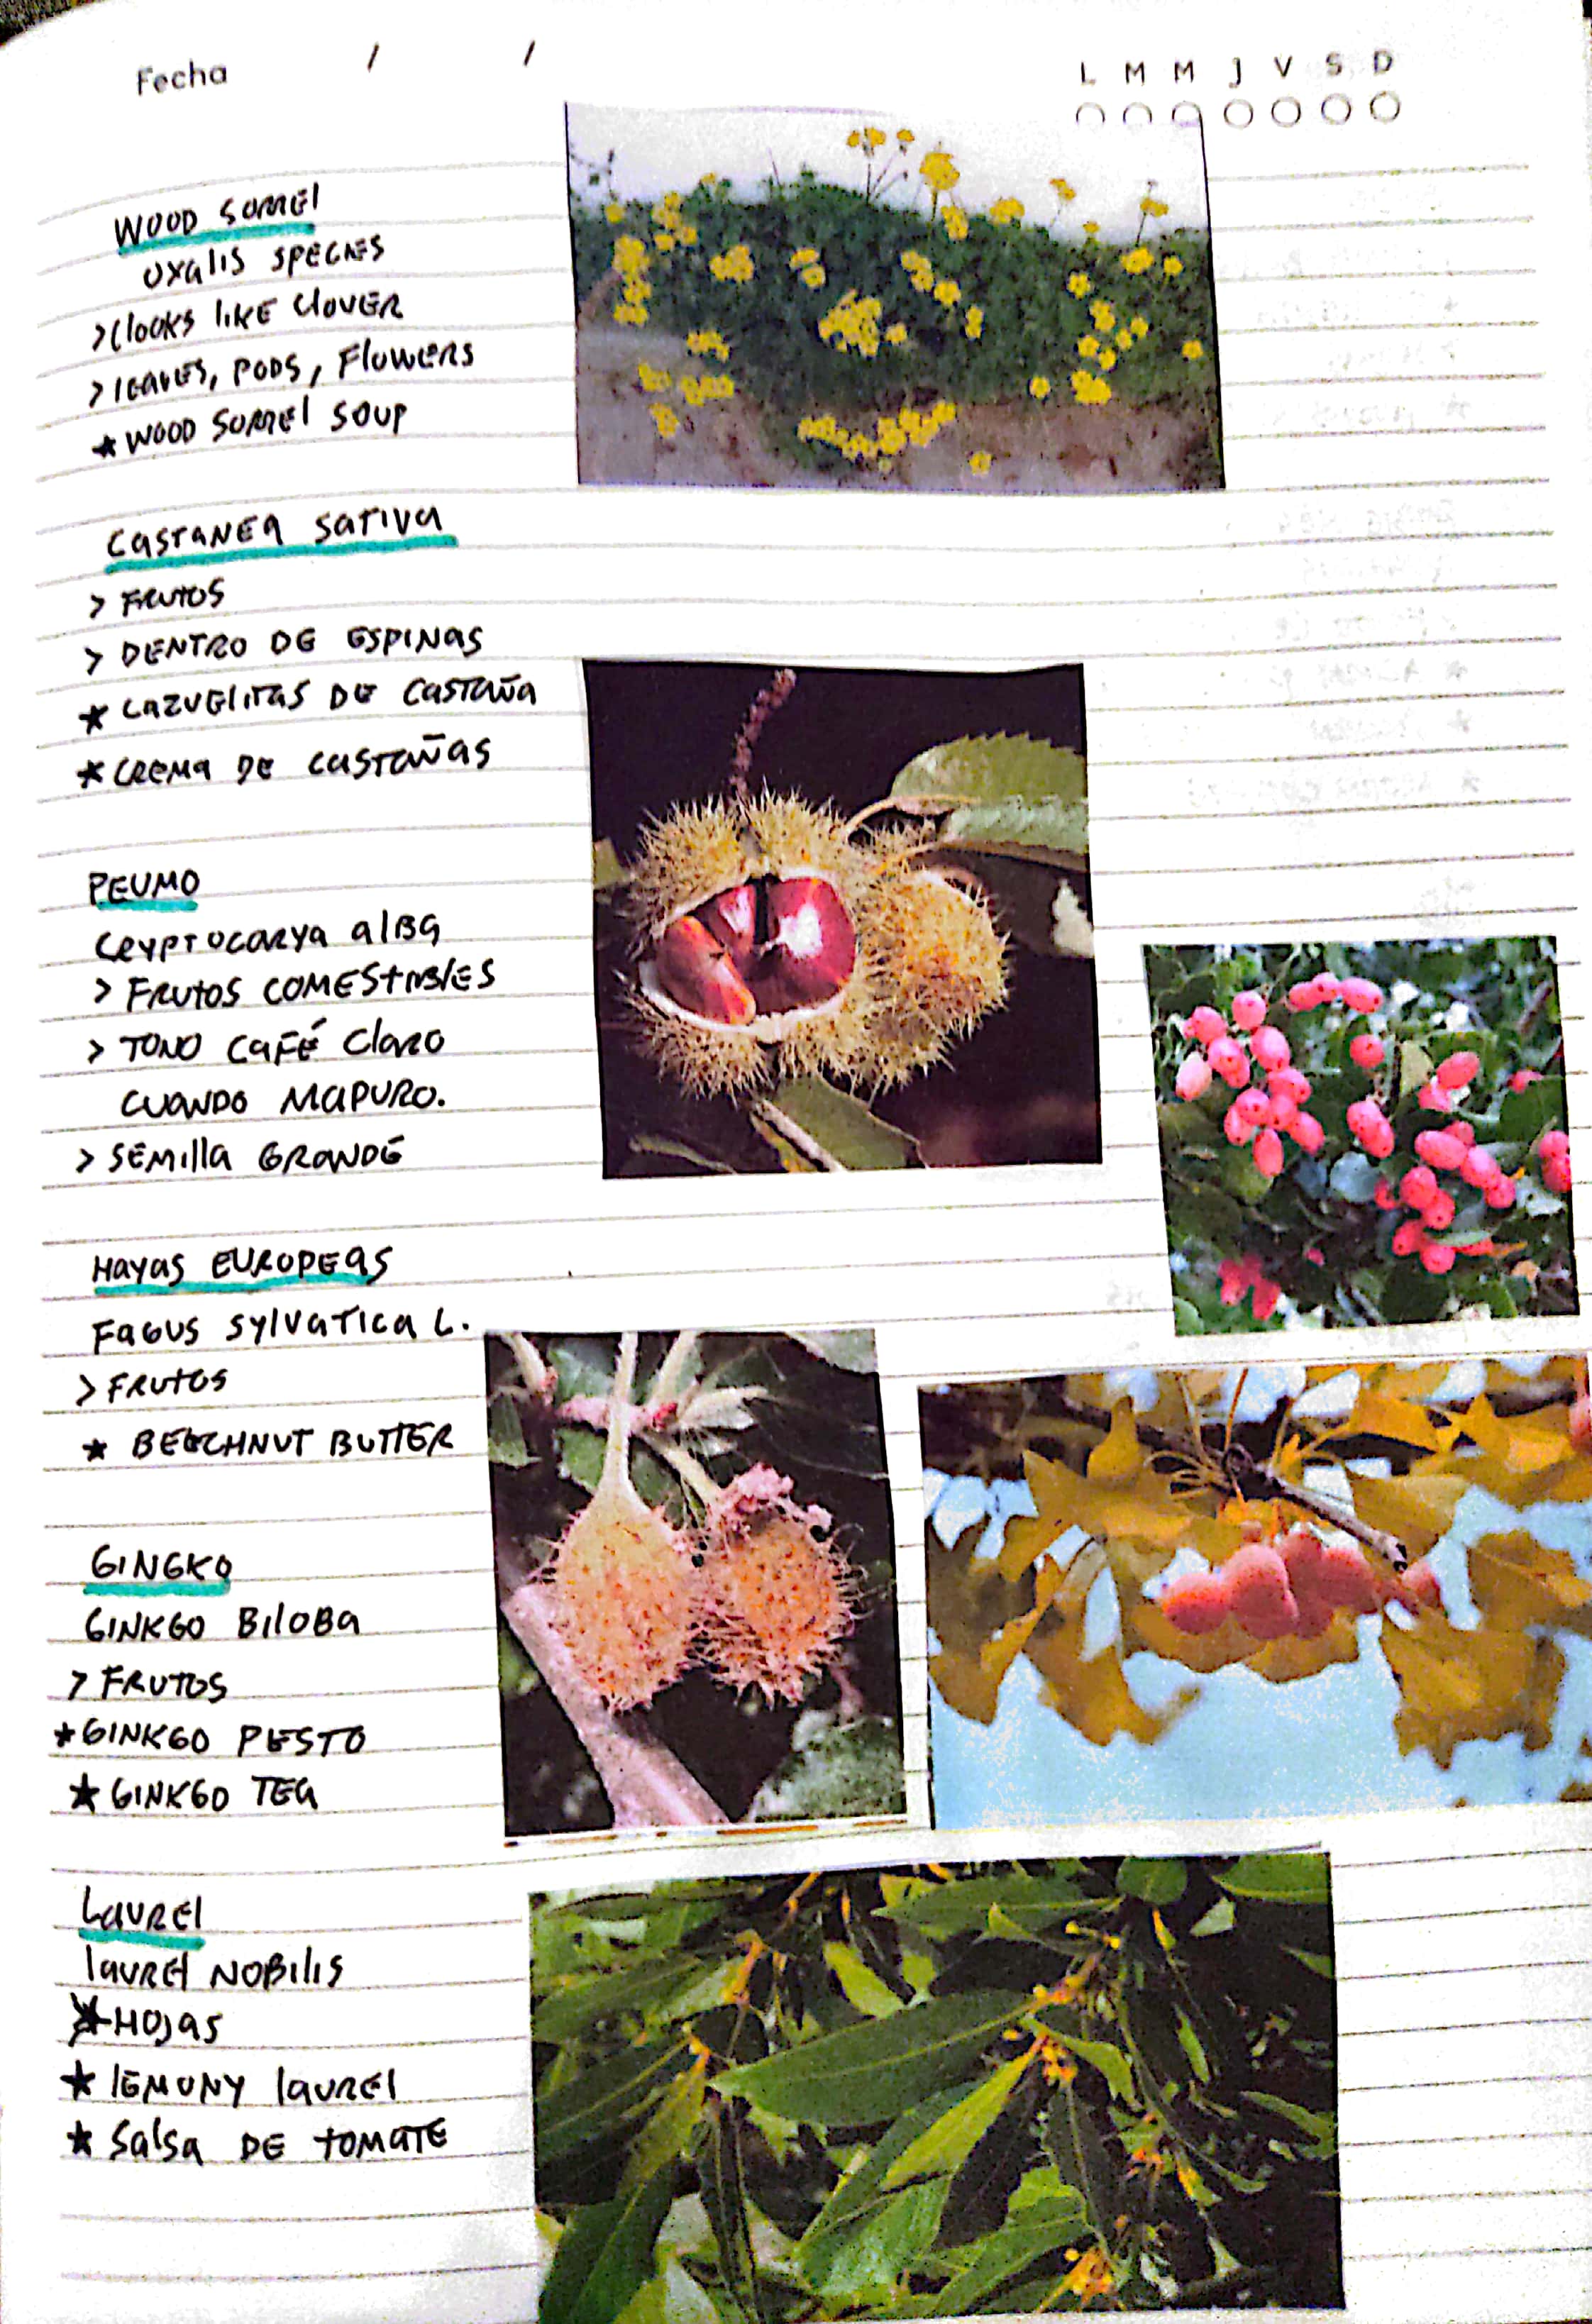 Fecha / /
L M M J V S D
WOOD SORREL
OXALIS SPECIES
> LOOKS LIKE CLOVER
> LEAVES, PODS, FLOWERS
★ WOOD SORREL SOUP
CASTANEA SATIVA
> FRUTOS
> DENTRO DE ESPINAS
★ CAZUELITAS DE CASTAÑA
★ CREMA DE CASTAÑAS
PEUMO
CRYPTOCARYA ALBA
> FRUTOS COMESTIBLES
> TONO CAFÉ CLARO
CUANDO MAPURO.
> SEMILLA GRANDE
HAYAS EUROPEAS
FAGUS SYLVATICA L.
> FRUTOS
★ BEECHNUT BUTTER
GINGKO
GINKGO BILOBA
> FRUTOS
★ GINKGO PESTO
★ GINKGO TEA
LAUREL
LAUREL NOBILIS
> HOJAS
★ LEMONY LAUREL
★ SALSA DE TOMATE